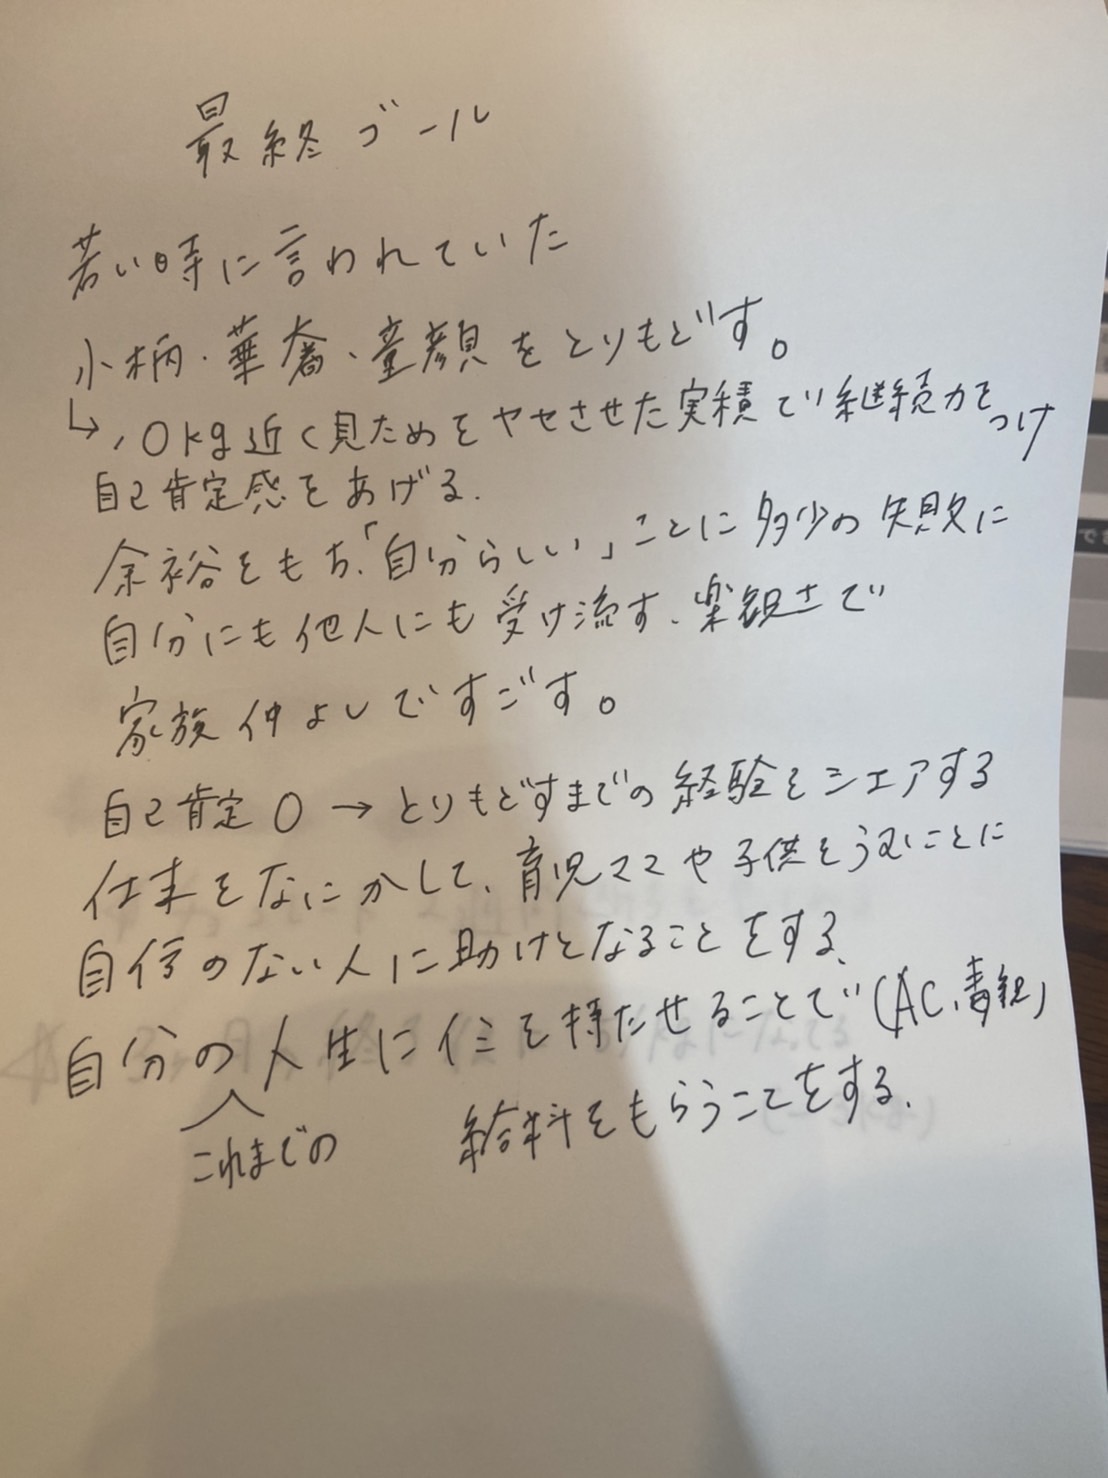 最終ゴール
若い時に言われていた
小柄・華奢・童顔をとりもどす。
↳10kg近く見ためをヤセさせた実積で継続力をつけ
自己肯定感をあげる.
余裕をもち、「自分らしい」ことに多少の失敗に
自分にも他人にも受け流す、楽観さで
家族仲よしですごす。
自己肯定0→とりもどすまでの経験をシェアする
仕事をなにかして、育児ママや子供をうむことに
自信のない人に助けとなることをする、
自分の人生にイミを持たせることで(AC、毒親)
これまでの 給料をもらうことをする.